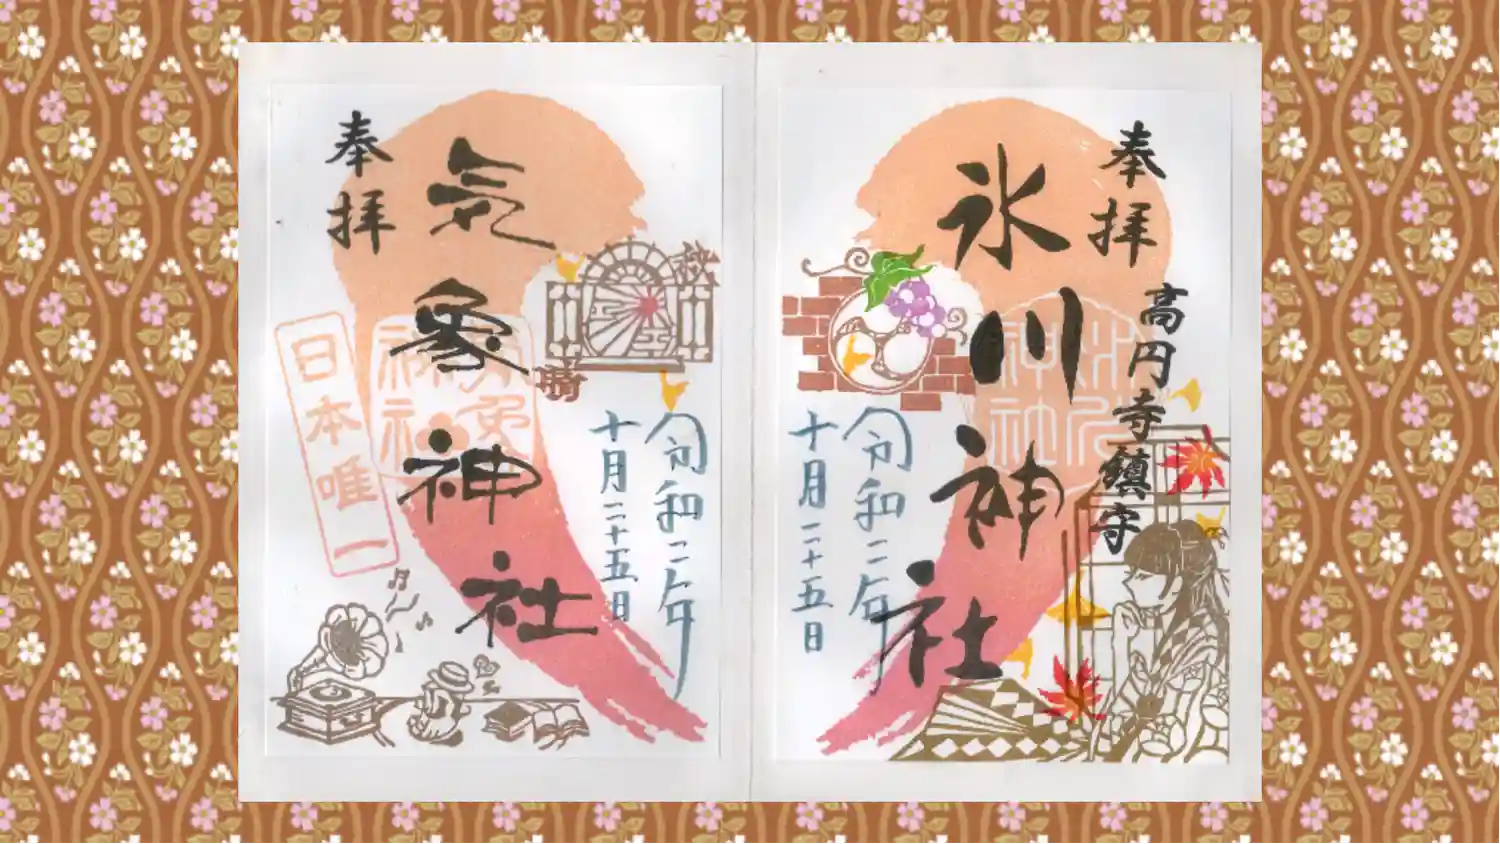 奉拝
高円寺鎮守
氷川神社
令和二年
十月二十五日
氷川
神社
奉拝
気象神社
日本唯一
晴
令和二年
十月二十五日
気象
神社